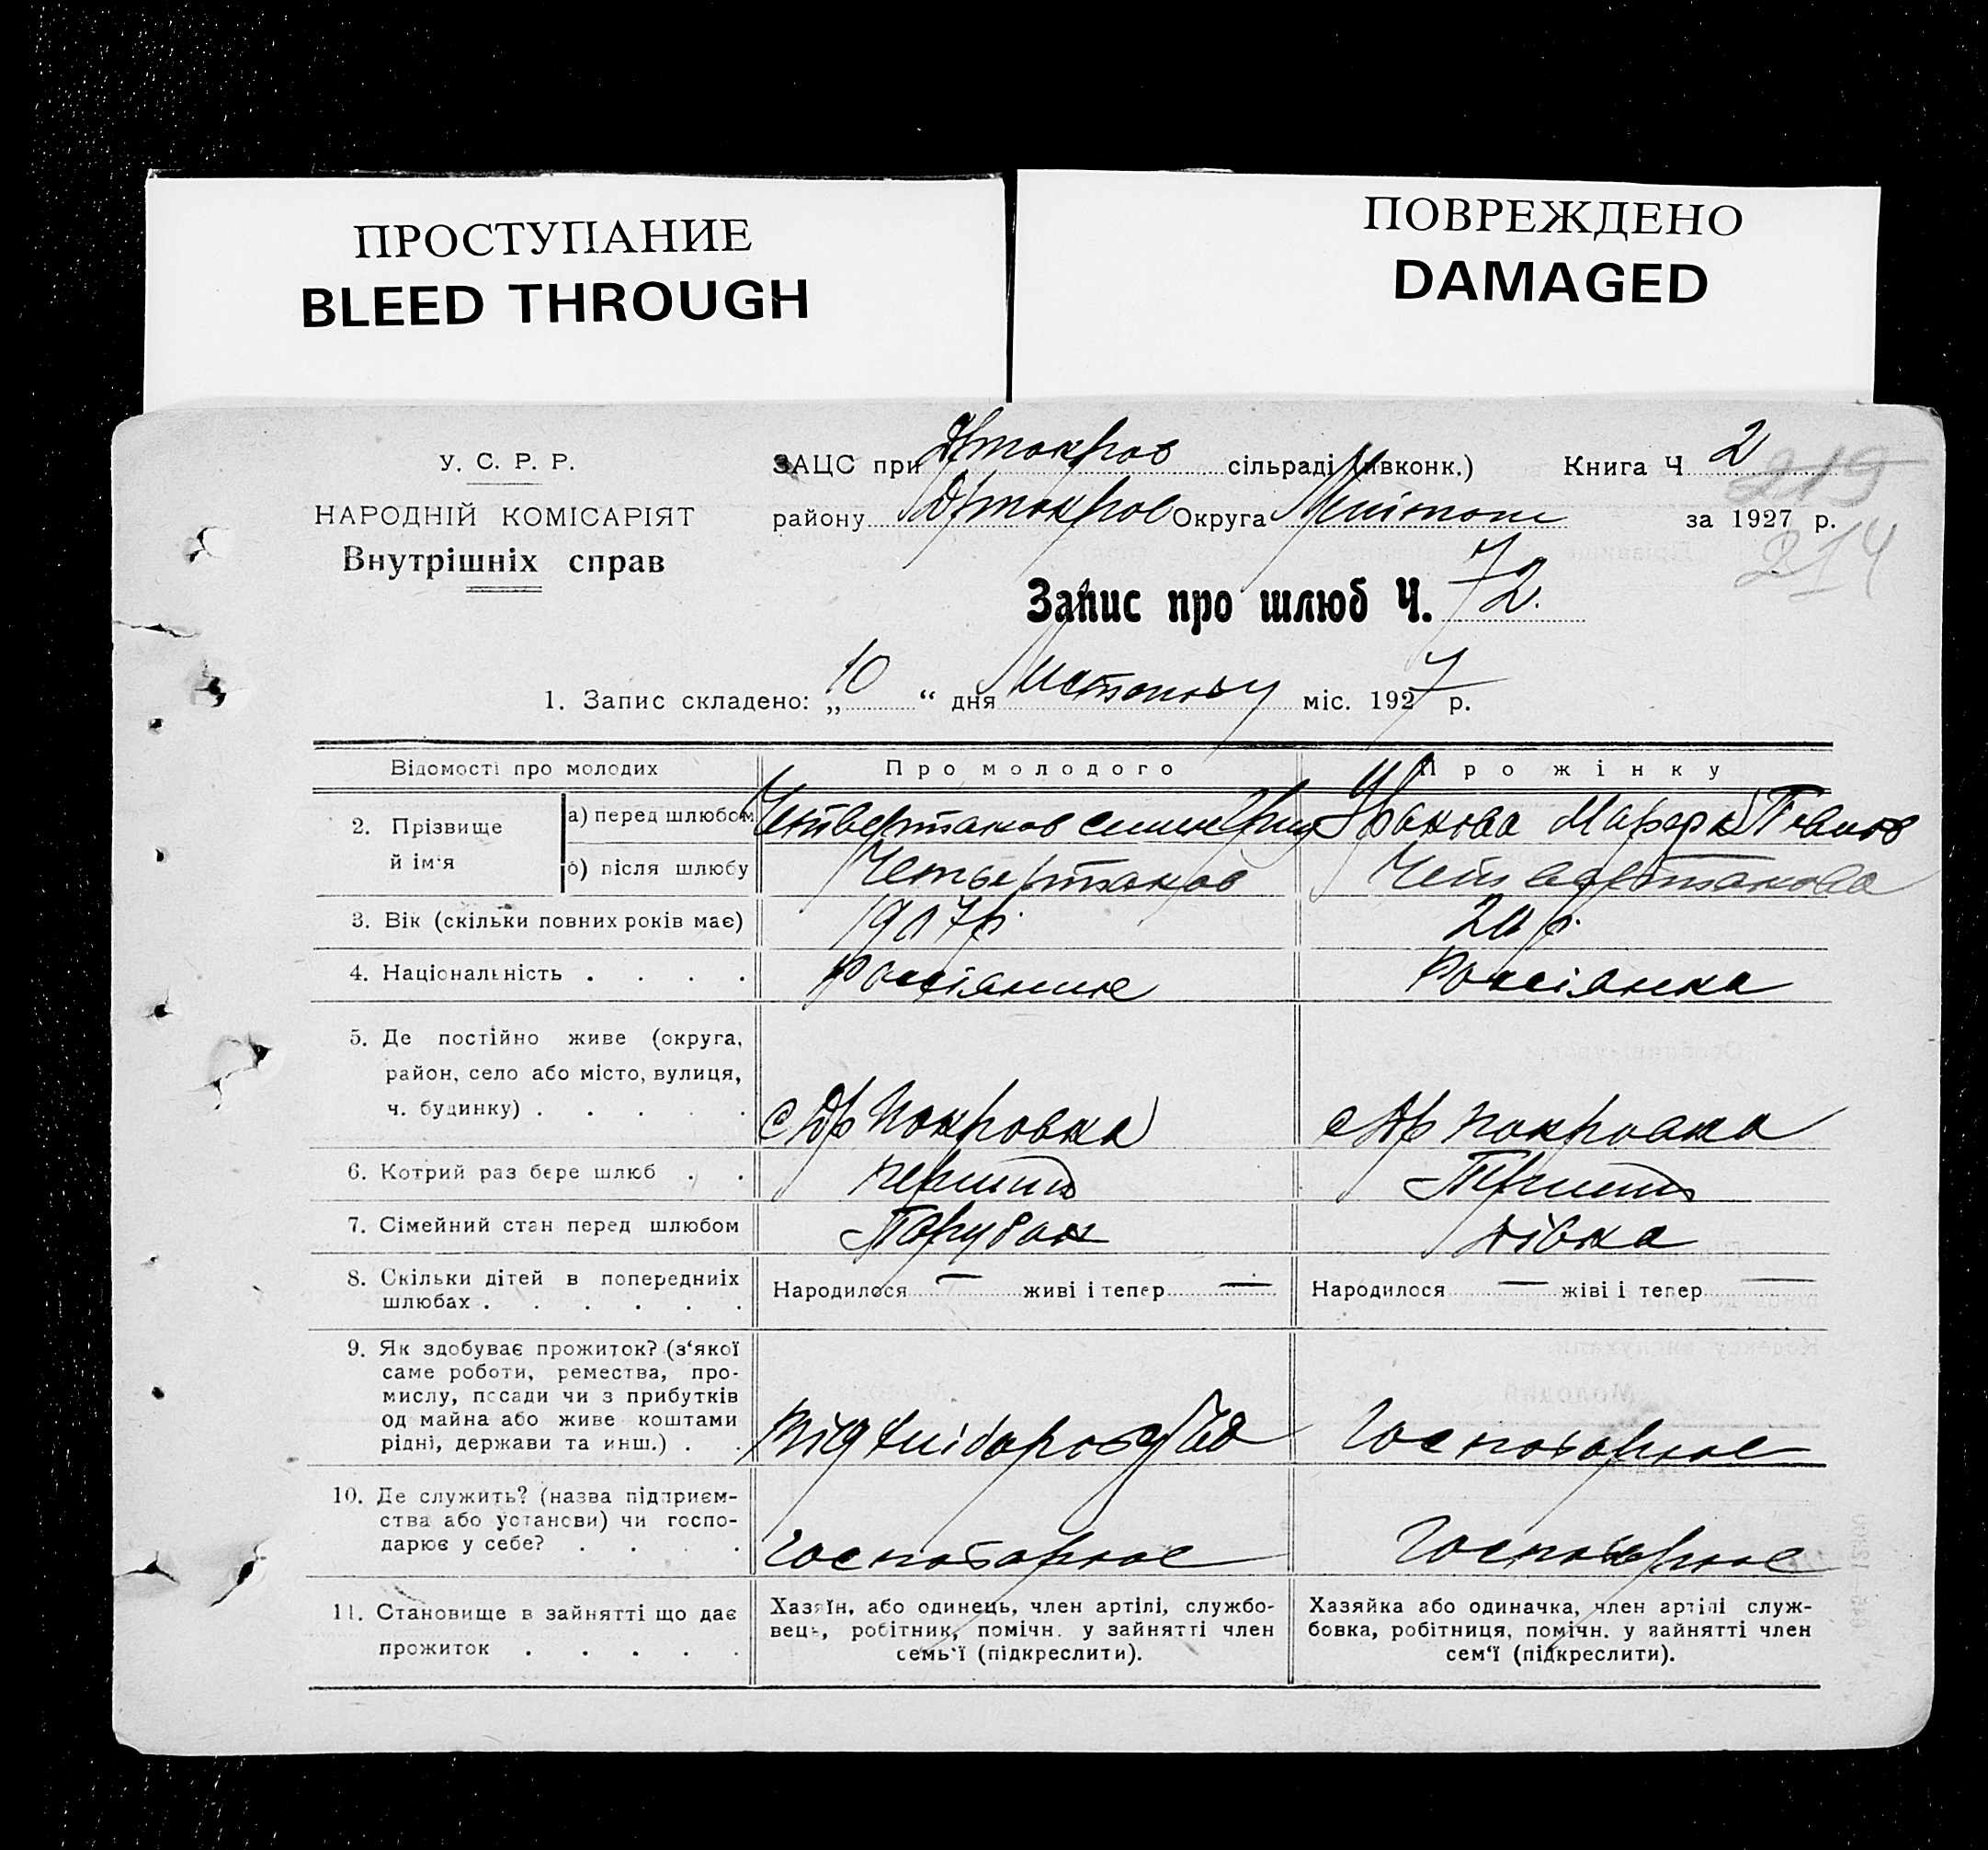 ПРОСТУПАНИЕ
BLEED THROUGH
ПОВРЕЖДЕНО
DAMAGED
У. С. Р. Р.
НАРОДНІЙ КОМІСАРІЯТ
Внутрішніх справ
ЗАЦС при сільраді (ивконк.) Книга Ч 2
219
району Округа за 1927 р.
214
Запис про шлюб Ч. 72.
1. Запис складено: „ 10 “ дня Листопаду міс. 1927 р.
Відомості про молодих Про молодого Про жінку
2. Прізвище й ім'я
а) перед шлюбом Четвертаков Уракова
б) після шлюбу Четьвертаков Четвертакова
3. Вік (скільки повних років має) 1907р. 20 р.
4. Національність . . . . Россіянин Россіянка
5. Де постійно живе (округа,
район, село або місто, вулиця,
ч. будинку) . . . . . с Др Покровка с Др Покровка
6. Котрий раз бере шлюб . . перший Перший
7. Сімейний стан перед шлюбом Парубок дівка
8. Скільки дітей в попередниіх Народилося — живі і тепер — Народилося — жіві і тепер —
шлюбах . . . . . .
9. Як здобуває прожиток? (з‘якої
саме роботи, ремества, про-
мислу, посади чи з прибутків
од майна або живе коштами
рідні, держави та инш.) . . Від хліборобства Господарює
10. Де служить? (назва підприєм-
ства або установи) чи госпо-
дарює у себе? . . . . Господарює Господарює
11. Становище в зайнятті що дає
прожиток . . . . .
Хазяїн, або одинець, член артілі, службо-
вець, робітник, помічн. у зайнятті член
семь‘ї (підкреслити).
Хазяйка або одиначка, член артілі служ-
бовка, робітниця, помічн. у зайнятті член
сем‘ї (підкреслити).